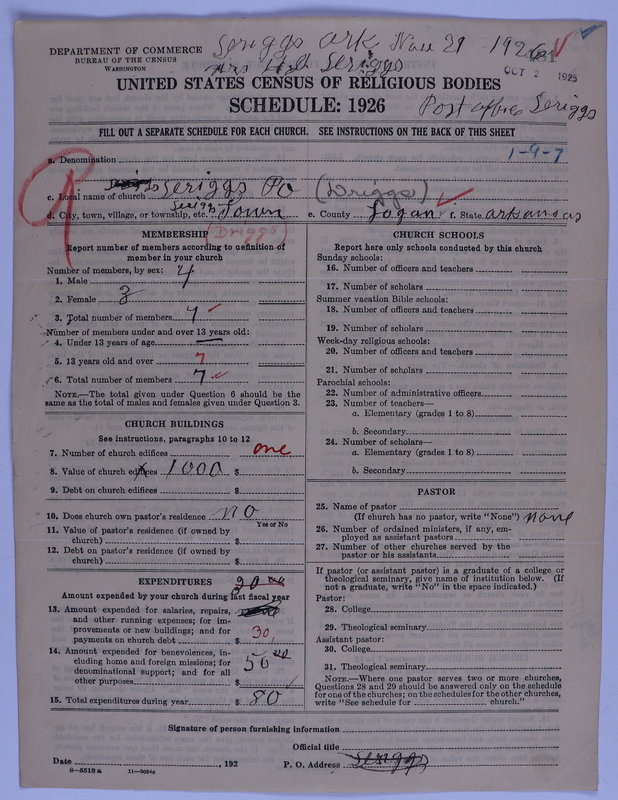 Scriggs Ark Nov 29 1926
DEPARTMENT OF COMMERCE
BUREAU OF THE CENSUS
WASHINGTON
Mrs Scriggs
OCT 2 1925
UNITED STATES CENSUS OF RELIGIOUS BODIES
SCHEDULE: 1926
Post office Scriggs
FILL OUT A SEPARATE SCHEDULE FOR EACH CHURCH. SEE INSTRUCTIONS ON THE BACK OF THIS SHEET
a. Denomination
1-9-7
c. Local name of church Scriggs Po (Driggs)
d. City, town, village, or township, etc. Scriggs Town e. County Logan f. State arkansas
(Driggs)
MEMBERSHIP
Report number of members according to definition of
member in your church
Number of members, by sex:
1. Male 4
2. Female 3
3. Total number of members 7
Number of members under and over 13 years old:
4. Under 13 years of age
5. 13 years old and over 7
6. Total number of members 7
NOTE.—The total given under Question 6 should be
same as the total of males and females given under Question 3.
CHURCH BUILDINGS
See instructions, paragraphs 10 to 12
7. Number of church edifices one
8. Value of church edifices 1000 $
9. Debt on church edifices $
10. Does church own pastor's residence no
Yes or No
11. Value of pastor's residence (if owned by
church) $
12. Debt on pastor's residence (if owned by
church) $
EXPENDITURES
Amount expended by your church during last fiscal year
13. Amount expended for salaries, repairs,
and other running expenses; for im-
provements or new buildings; and for
payments on church debt $ 30
14. Amount expended for benevolences, in-
cluding home and foreign missions; for
denominational support; and for all
other purposes $ 50 00
15. Total expenditures during year $ 80
CHURCH SCHOOLS
Report here only schools conducted by this church
Sunday schools:
16. Number of officers and teachers
17. Number of scholars
Summer vacation Bible schools:
18. Number of officers and teachers
19. Number of scholars
Week-day religious schools:
20. Number of officers and teachers
21. Number of scholars
Parochial schools:
22. Number of administrative officers
23. Number of teachers—
a. Elementary (grades 1 to 8)
b. Secondary
24. Number of scholars—
a. Elementary (grades 1 to 8)
b. Secondary
PASTOR
25. Name of pastor
(If church has no pastor, write "None") none
26. Number of ordained ministers, if any, em-
ployed as assistant pastors
27. Number of other churches served by the
pastor or his assistants
If pastor (or assistant pastor) is a graduate of a college or
theological seminary, give name of institution below. (If
not a graduate, write "No" in the space indicated.)
Pastor:
28. College
29. Theological seminary
Assistant pastor:
30. College
31. Theological seminary
NOTE.—Where one pastor serves two or more churches,
Questions 28 and 29 should be answered only on the schedule
for one of the churches; on the schedules for the other churches,
write "See schedule for church."
Signature of person furnishing information
Official title
Date , 192 P. O. Address Scriggs
8-5518 a 11-9024